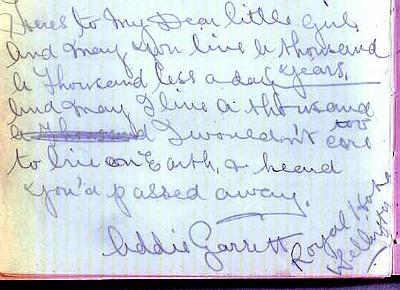 Heres to my Dear little Girl
and may you live a thousand
a thousand less a day years.
and may I live a thousand too
a thousand I wouldn't care
to live on Earth, & heard
you'd passed away.
Addie Garrett
Royal